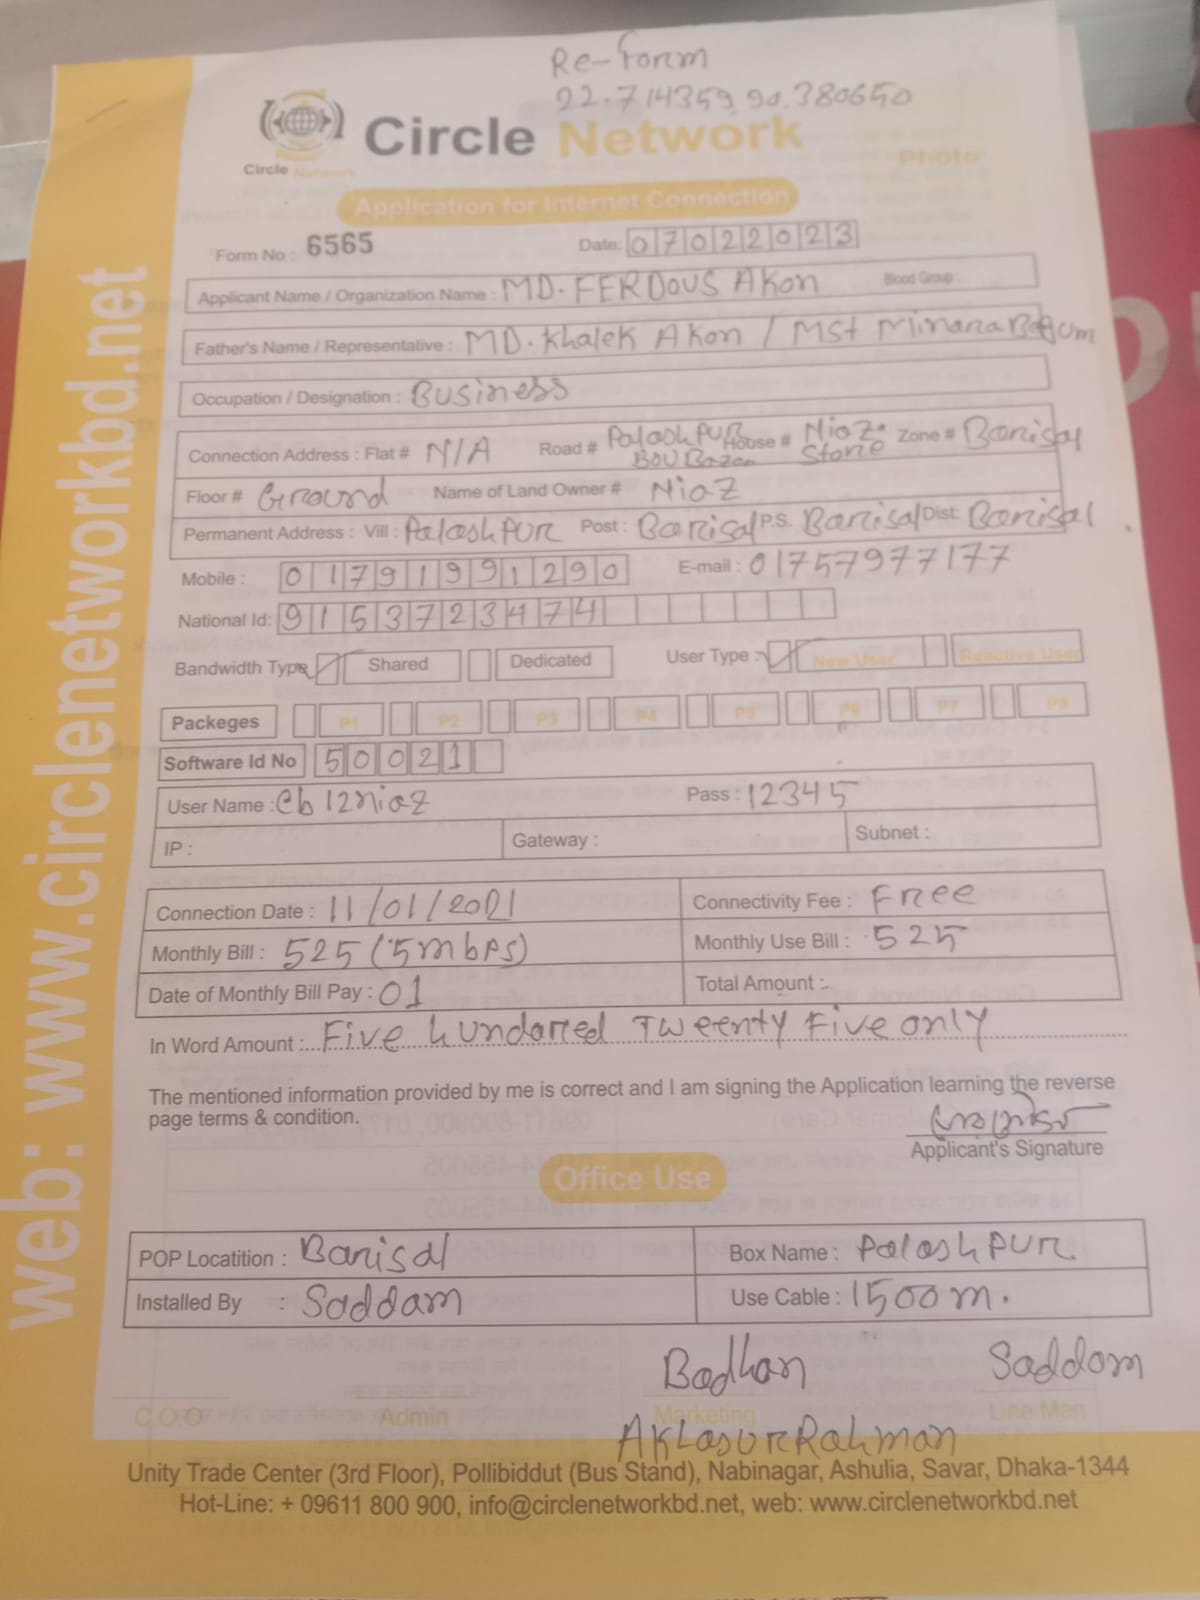 Re-Form
22.714359, 90.380650
Circle Network
Circle Network
Photo
Application for Internet Connection
Form No : 6565 Date: 07022023
Applicant Name / Organization Name : MD. FERDOUS AKon Blood Group :
Father's Name / Representative : MD. Khalek AKon / MSt Minara Begum
Occupation / Designation : Business
Connection Address : Flat # N/A Road # Palashpur BOU Bazar House # Niaz Store Zone # Barisal
Floor # Ground Name of Land Owner # Niaz
Permanent Address : Vill : Palashpur Post : Barisal P.S. Barisal Dist: Barisal
Mobile : 01791991290 E-mail : 01757977177
National Id: 9153723474
Bandwidth Type Shared Dedicated User Type : New User Reactive User
Packeges P1 P2 P3 P4 P5 P6 P7 P8
Software Id No 50021
User Name : cb12niaz Pass : 12345
IP : Gateway : Subnet :
Connection Date : 11/01/2021 Connectivity Fee : Free
Monthly Bill : 525 (5mbps) Monthly Use Bill : 525
Date of Monthly Bill Pay : 01 Total Amount :
In Word Amount : Five hundarred Tweenty Five only
The mentioned information provided by me is correct and I am signing the Application learning the reverse
page terms & condition.
Applicant's Signature
Office Use
POP Locatition : Barisal Box Name : Palashpur.
Installed By : Saddam Use Cable : 1500m.
Badhan Saddam
C.O.O Admin Marketing Line Man
AKLasurRahman
Unity Trade Center (3rd Floor), Pollibiddut (Bus Stand), Nabinagar, Ashulia, Savar, Dhaka-1344
Hot-Line: + 09611 800 900, info@circlenetworkbd.net, web: www.circlenetworkbd.net
web: www.circlenetworkbd.net